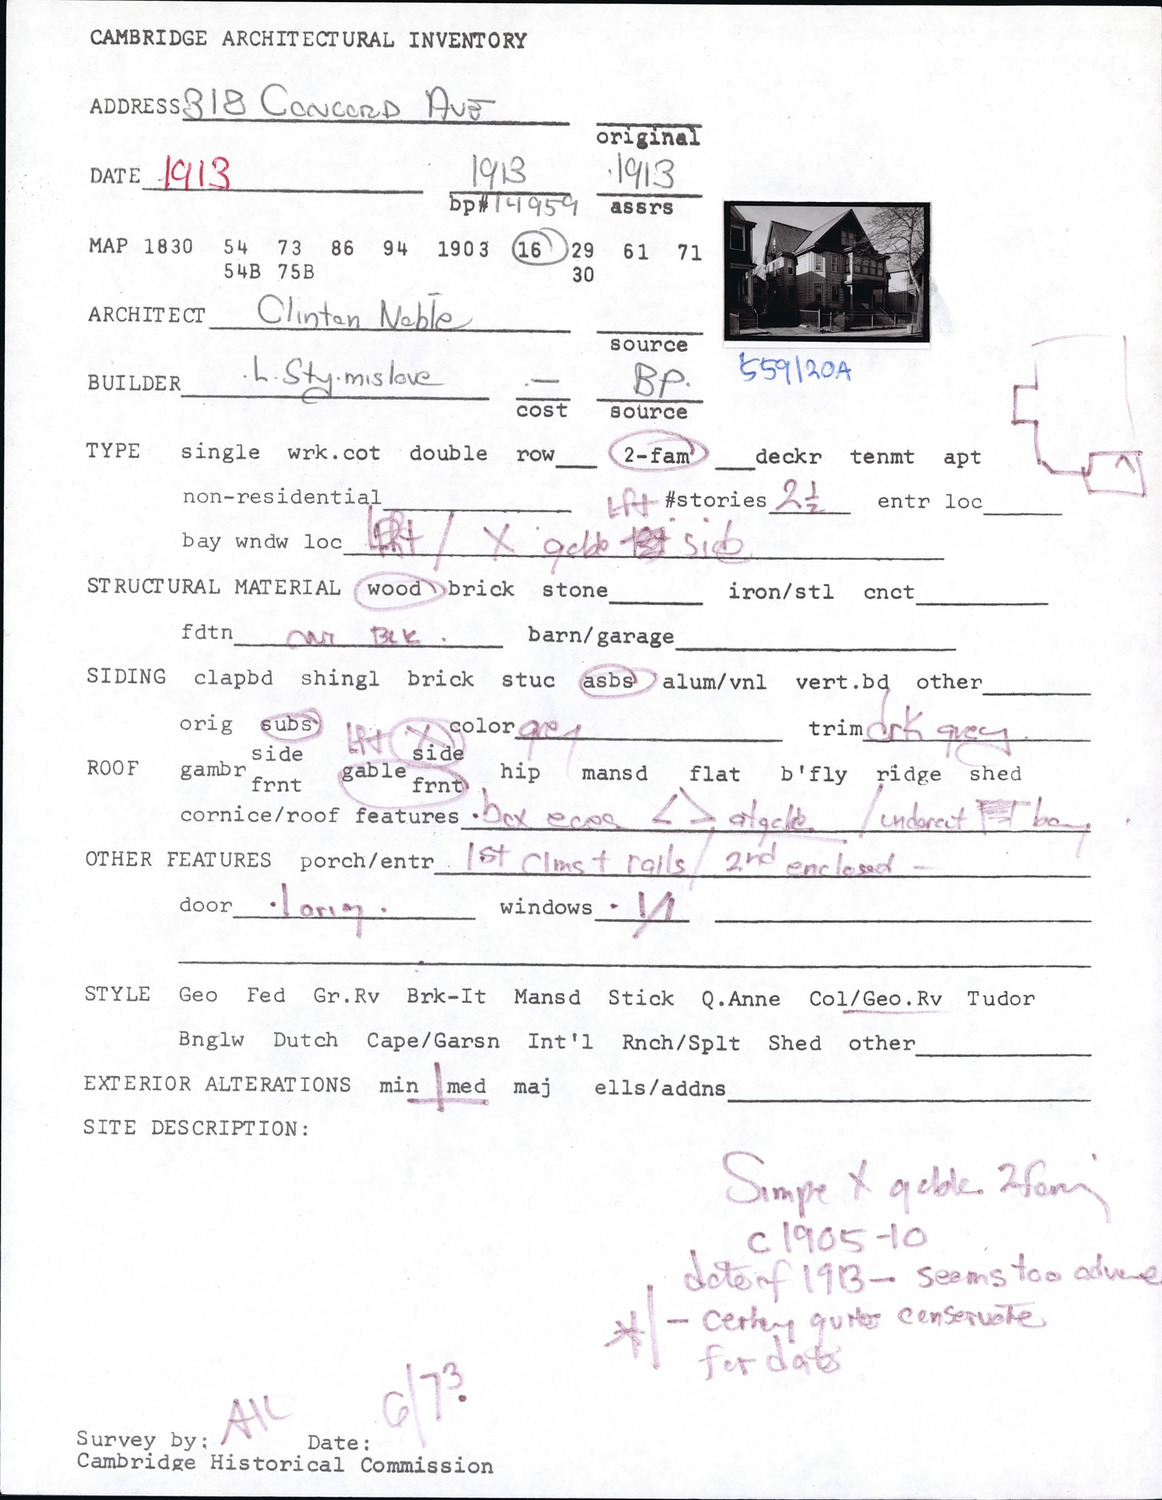 CAMBRIDGE ARCHITECTURAL INVENTORY
ADDRESS 318 CONCORD AVE
original
DATE 1913 1913 1913
bp# 14959 assrs
MAP 1830 54 73 86 94 1903 16 29 61 71
54B 75B 30
ARCHITECT Clinton Noble
source
559/20A
BUILDER L. Stymislove — BP.
cost source
TYPE single wrk.cot double row 2-fam deckr tenmt apt
non-residential Lft #stories 2 1/2 entr loc
bay wndw loc Lft / X gable side
STRUCTURAL MATERIAL wood brick stone iron/stl cnct
fdtn Blk. barn/garage
SIDING clapbd shingl brick stuc asbs alum/vnl vert.bd other
orig subs color grey trim drk grey
side Lft X side
ROOF gambr gable hip mansd flat b'fly ridge shed
frnt frnt
cornice/roof features box eaves < > at gable / undercut bay
OTHER FEATURES porch/entr 1st clms + rails / 2nd enclosed -
door 1 orig. windows 1/1
STYLE Geo Fed Gr.Rv Brk-It Mansd Stick Q.Anne Col/Geo.Rv Tudor
Bnglw Dutch Cape/Garsn Int'l Rnch/Splt Shed other
EXTERIOR ALTERATIONS min med maj ells/addns
SITE DESCRIPTION:
Simpe X gable 2 fam
c 1905-10
date of 1913 — seems too
* - quite
for date
Survey by: Date: 6/73
Cambridge Historical Commission